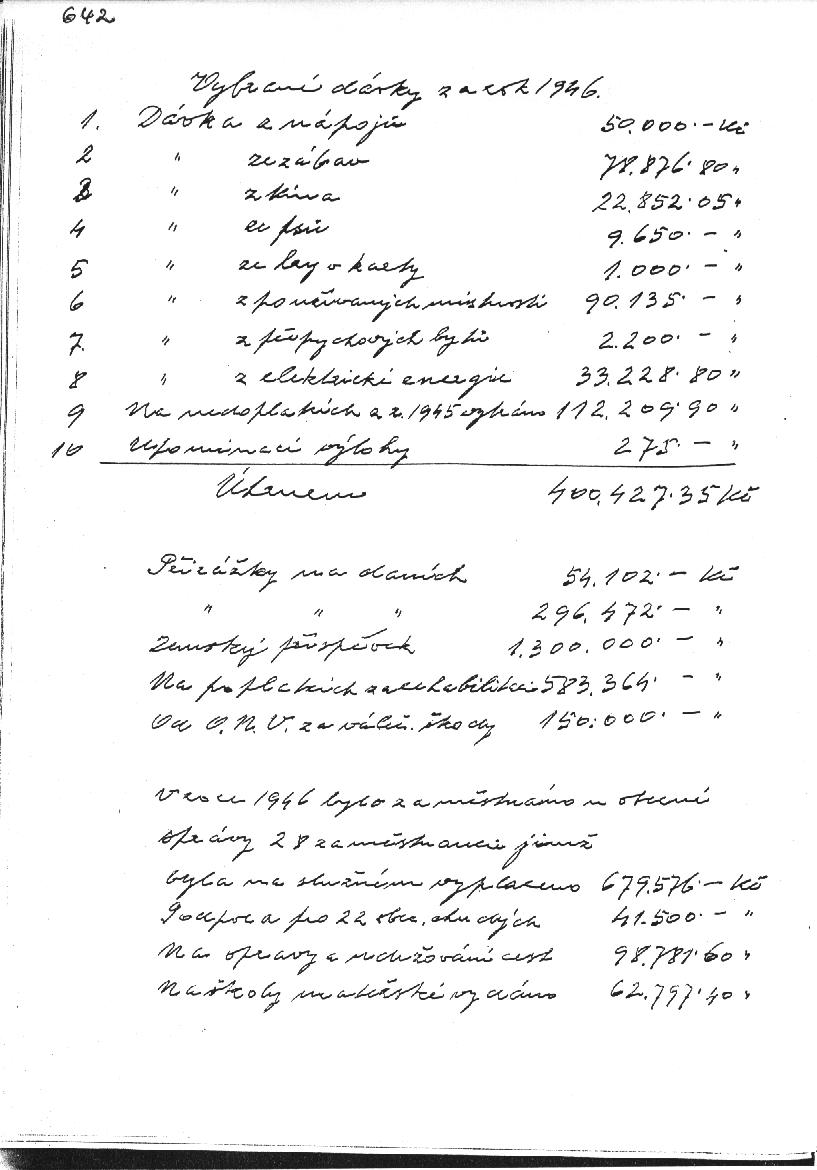 642
Vybrané dávky za rok 1946.
1. Dávka z nápojů 50.000·– Kč
2 " ze zábav 78.876·80 "
3 " z kina 22.852·05 "
4 " ze psů 9.650·– "
5 " ze hry v karty 1.000·– "
6 " z používaných místností 90.135·– "
7. " z přepychových bytů 2.200·– "
8 " z elektrické energie 33.228·80 "
9 Na nedoplatcích z r. 1945 vybráno 112.209·90 "
10 Upomínací výlohy 275·– "
Úhrnem 400.427·35 Kč
Přirážky na daních 54.102·– Kč
" " " 296.472·– "
Zemský příspěvek 1.300.000·– "
Na poplatcích za rehabilitaci 583.364·– "
Od O.N.V. za váleč. škody 150.000·– "
V roce 1946 bylo zaměstnáno u obecní
správy 28 zaměstnanců jimž
bylo na služném vyplaceno 679.576·– Kč
Podpora pro 22 obec. chudých 41.500·– "
Na opravy a udržování cest 98.781·60 "
Na školy mateřské vydáno 62.797·40 "